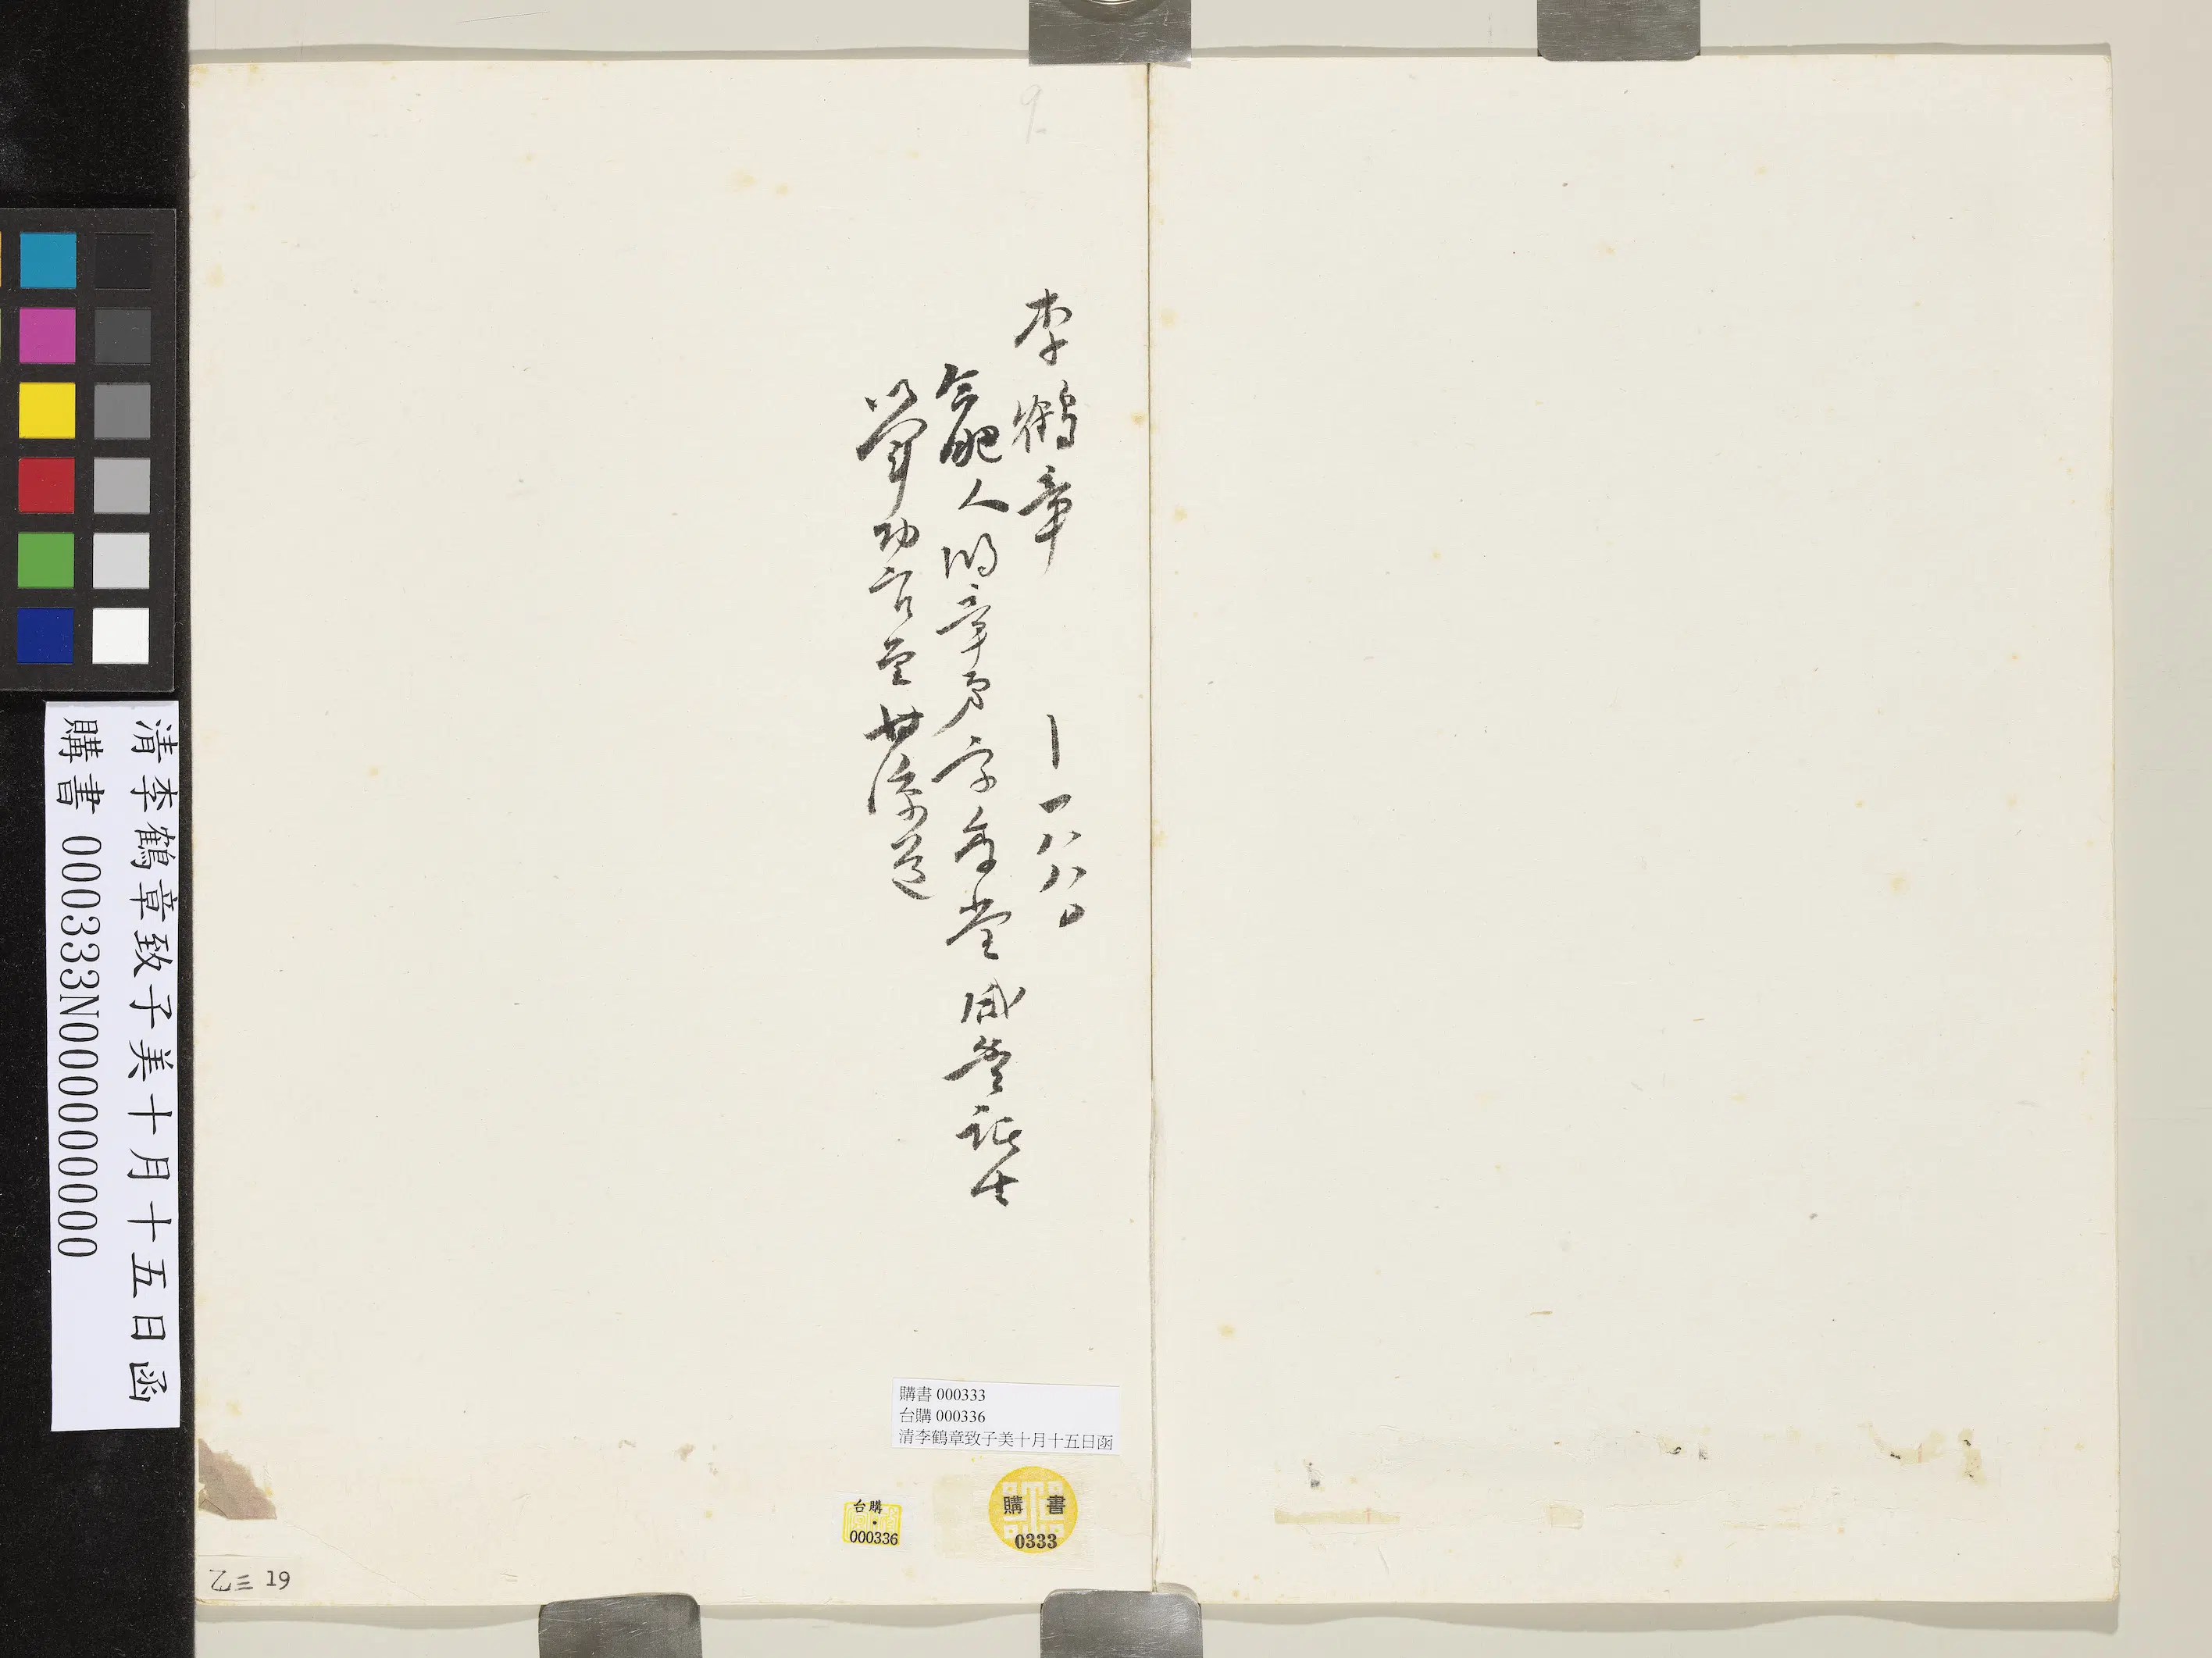 李鶴章 ｜一八八〇
合肥人鴻章弟字季荃咸豐諸生
以軍功官至甘涼道
購書 000333
台購 000336
清李鶴章致子美十月十五日函
購書
0333
台購
000336
乙三 19
清李鶴章致子美十月十五日函
購書 000333N000000000
9